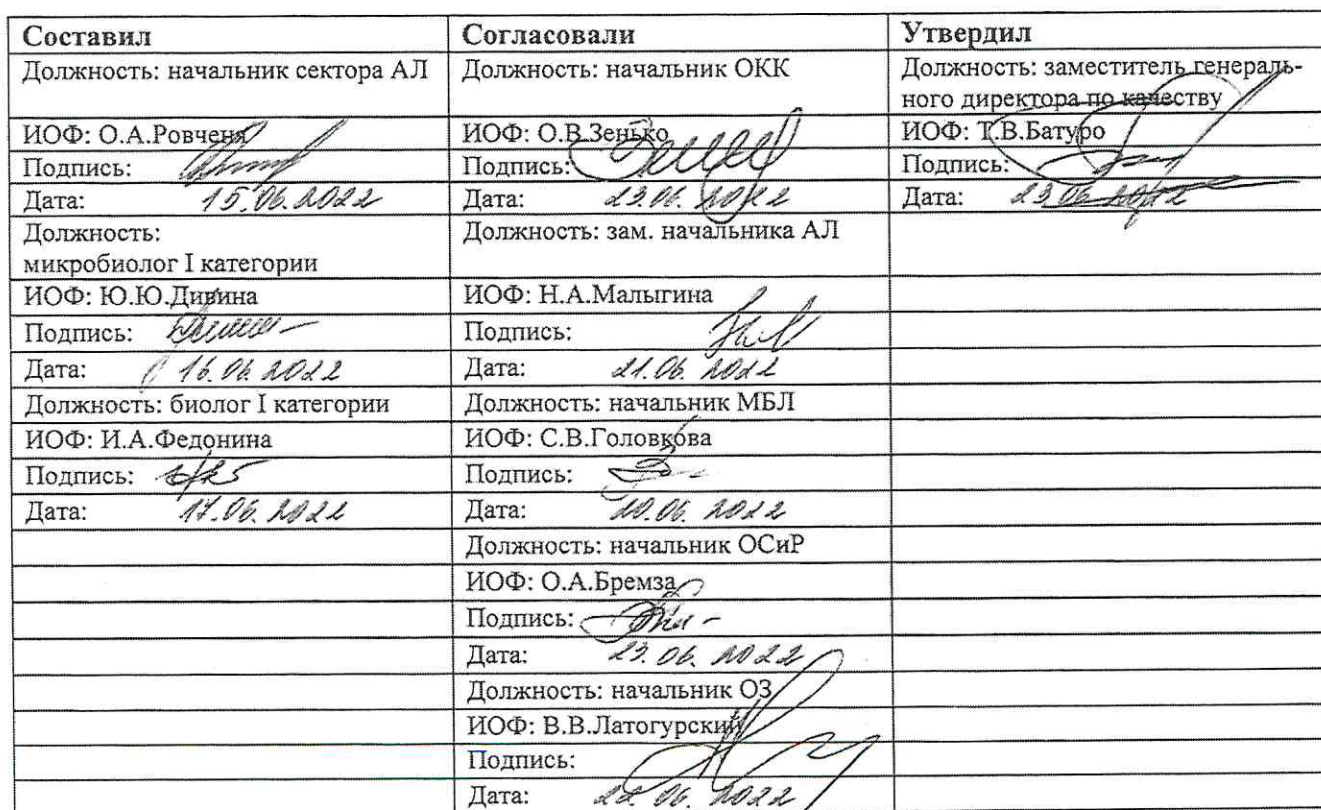 Составил Согласовали Утвердил
Должность: начальник сектора АЛ Должность: начальник ОКК Должность: заместитель генераль-
ного директора по качеству
ИОФ: О.А.Ровченя ИОФ: О.В.Зенько ИОФ: Т.В.Батуро
Подпись: Подпись: Подпись:
Дата: 15.06.2022 Дата: 23.06.2022 Дата: 23.06.2022
Должность: Должность: зам. начальника АЛ
микробиолог I категории
ИОФ: Ю.Ю.Дивина ИОФ: Н.А.Малыгина
Подпись: Подпись:
Дата: 16.06.2022 Дата: 21.06.2022
Должность: биолог I категории Должность: начальник МБЛ
ИОФ: И.А.Федонина ИОФ: С.В.Головкова
Подпись: Подпись:
Дата: 17.06.2022 Дата: 20.06.2022
Должность: начальник ОСиР
ИОФ: О.А.Бремза
Подпись:
Дата: 23.06.2022
Должность: начальник ОЗ
ИОФ: В.В.Латогурский
Подпись:
Дата: 22.06.2022